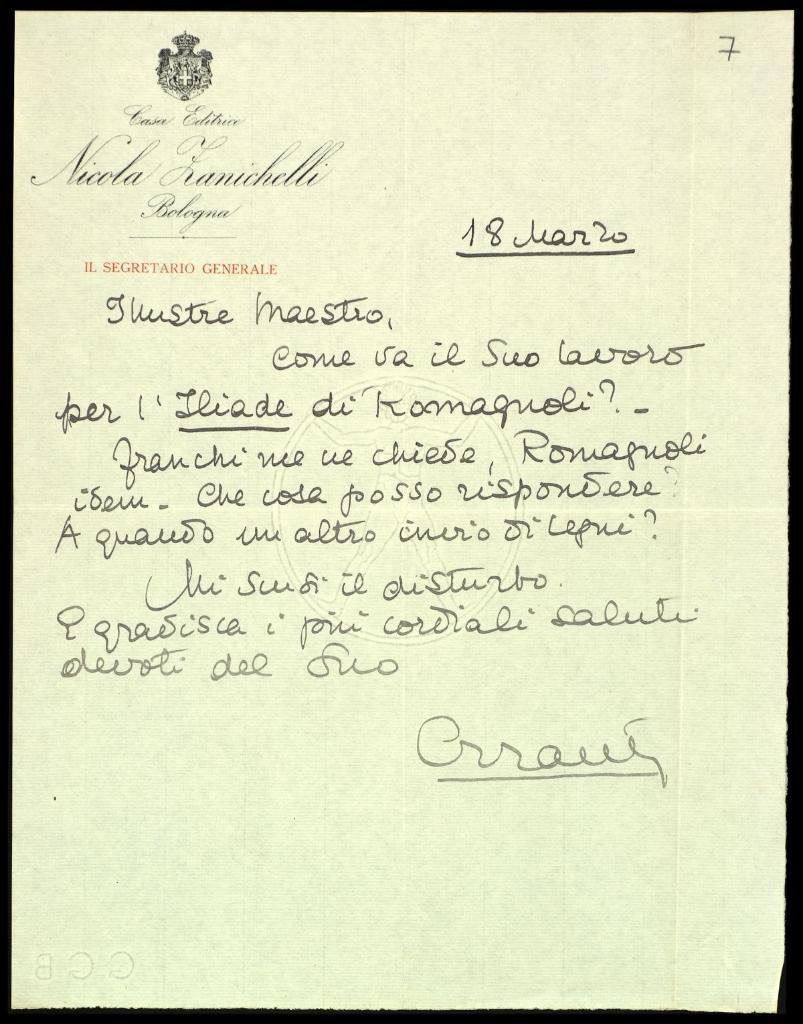 7
Casa Editrice
Nicola Zanichelli
Bologna
IL SEGRETARIO GENERALE
18 Marzo
Illustre Maestro,
come va il Suo lavoro
per l'Iliade di Romagnoli? -
Franchi me ne chiede, Romagnoli
idem - Che cosa posso rispondere?
A quando un altro invio di legni?
Mi scusi il disturbo.
E gradisca i più cordiali saluti
devoti del Suo
Errante